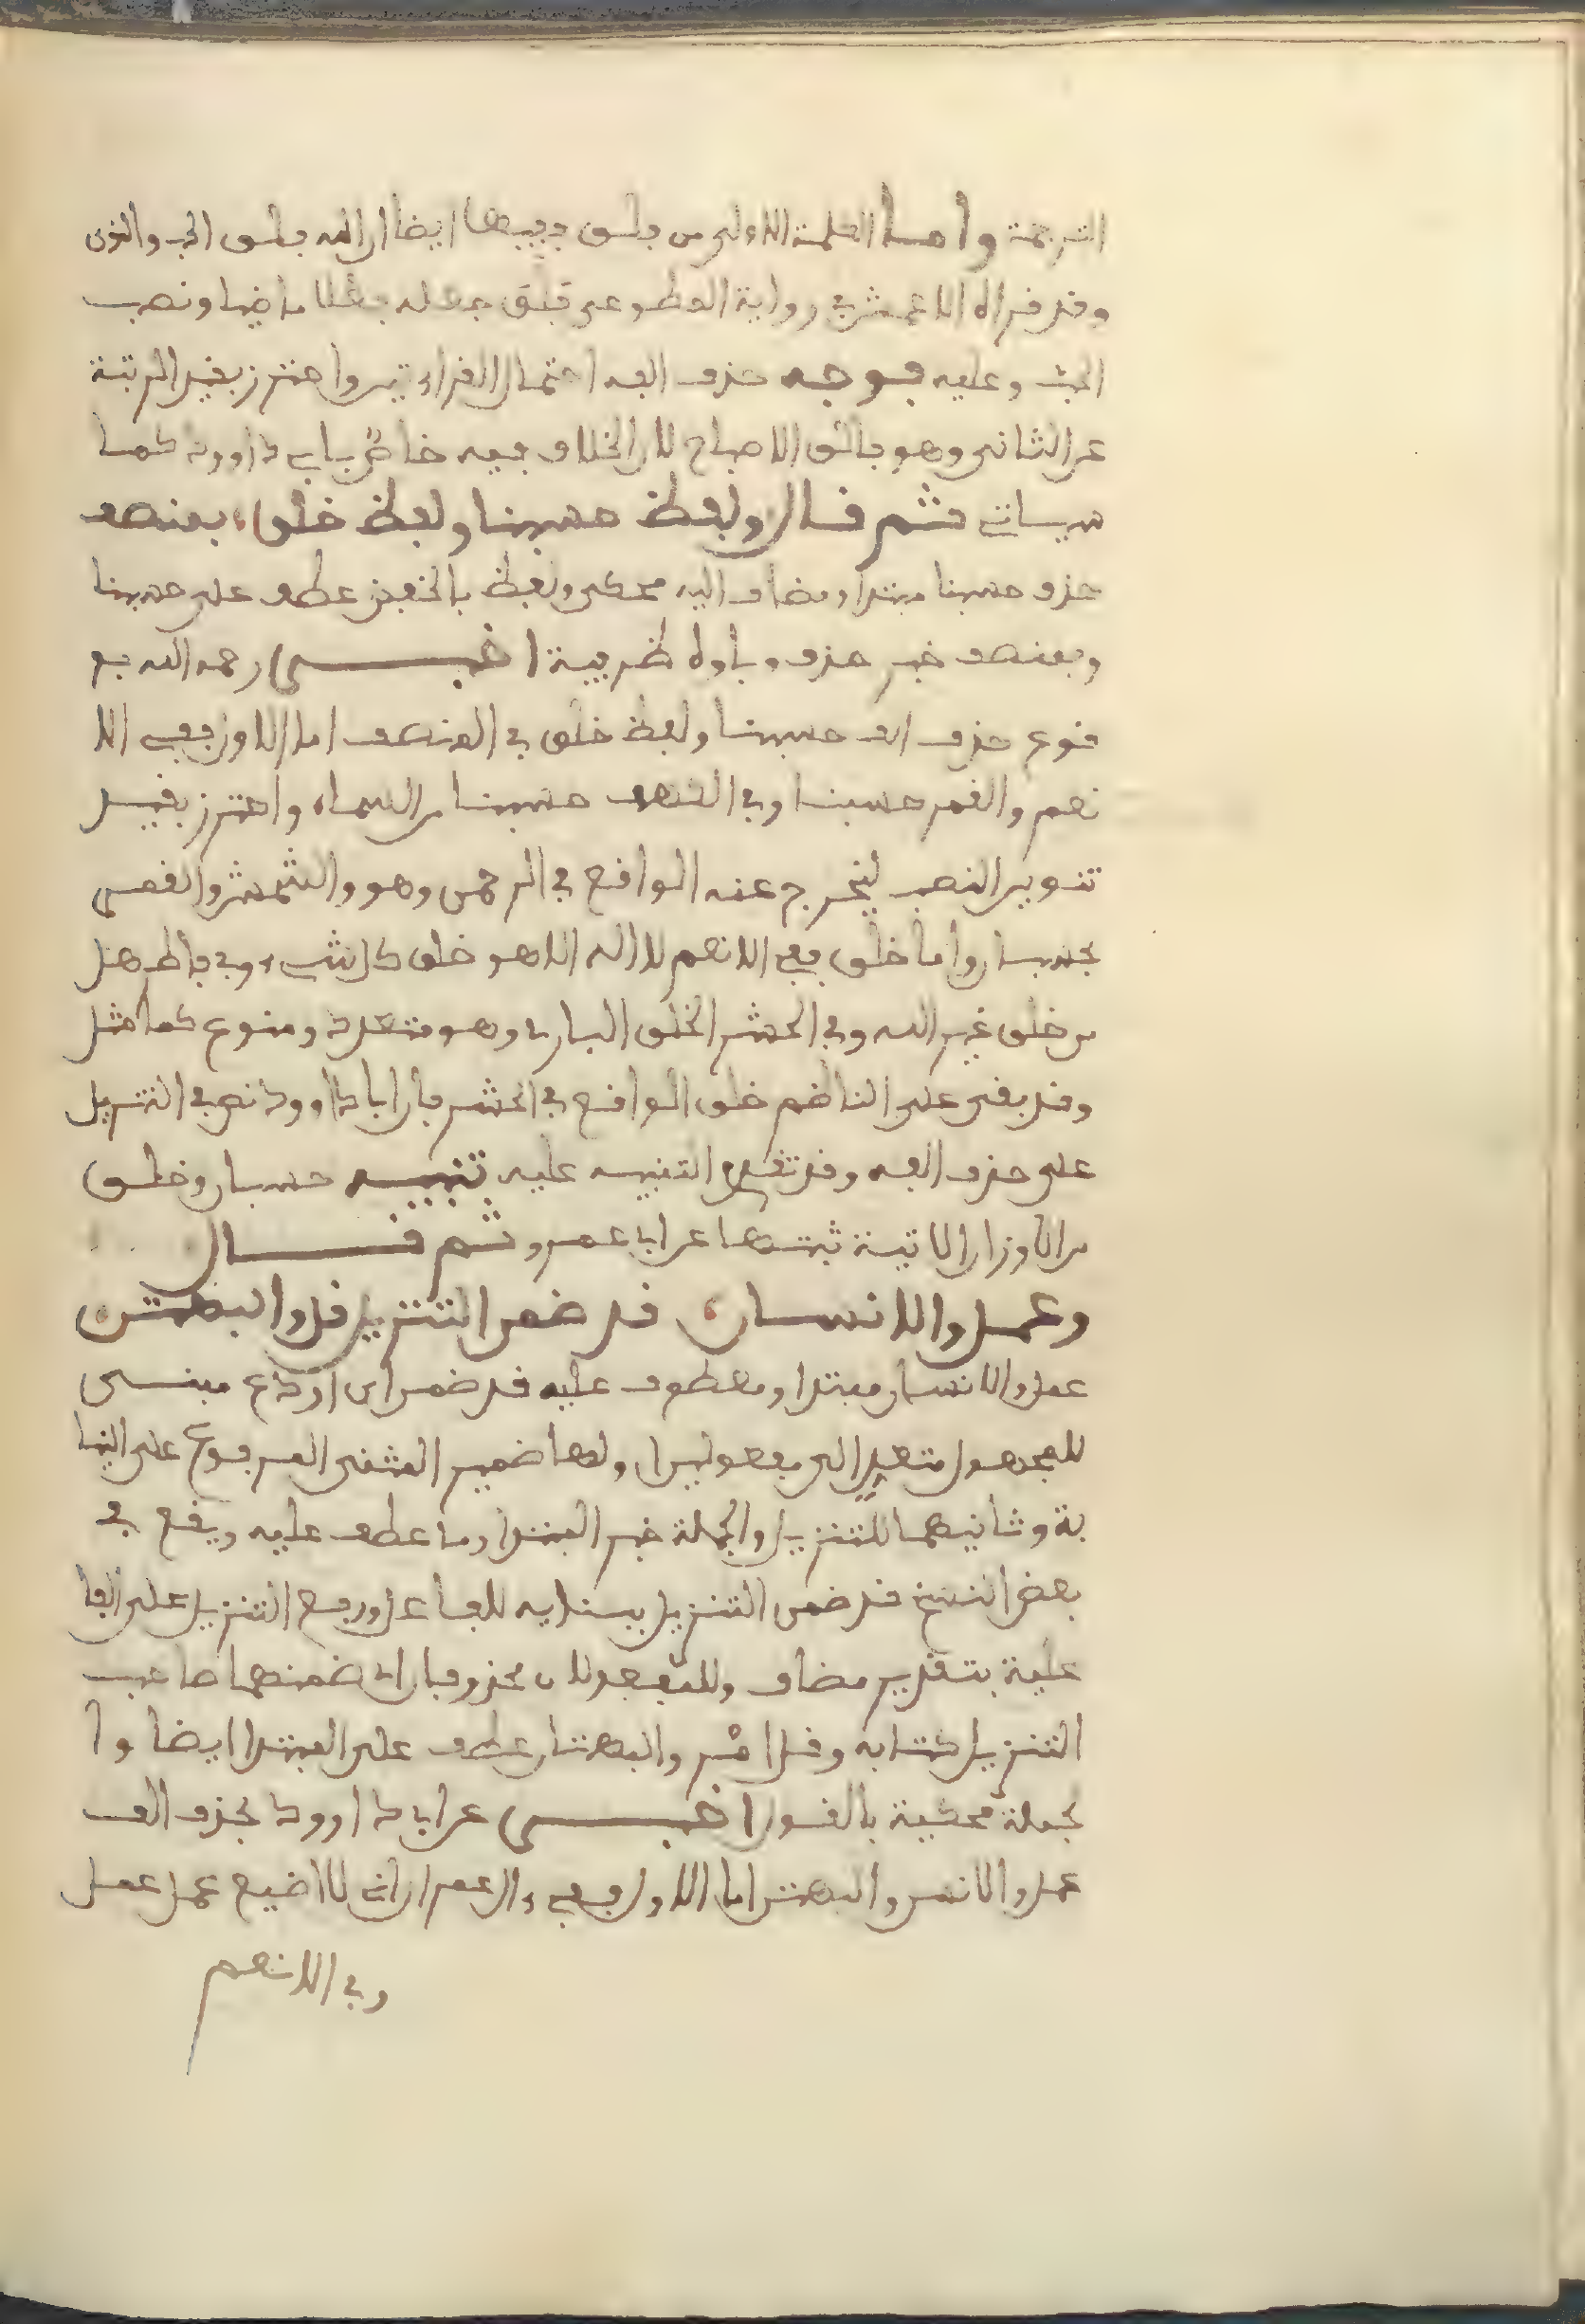 الترجمة وأما الكلمة الاولى من فلق ففيها ايضا ان الله فلق الحب والنوى
وقد قراه الاعمش في رواية المطوعي فلق جعله فعلا ماضيا ونصب
الحب وعليه فوجه حذف الفه احتمال القراءتين واحترز بقيد المرتبة
عن الثاني وهو فالق الاصباح لان الخلاف فيه خاص بابي داوود كما
سياتي ثم قال ولفظ حسبنا ولفظ خلق بمنصف
حذف حسبنا مبتدا ومضاف اليه محكي ولفظ بالخفض عطف على حسبنا
وبمنصف خبر حذف وباؤه ظرفية اخبر رحمه الله بو
قوع حذف الف حسبنا ولفظ خلق في المنصف اما الاول ففي الا
نعم والقمر حسبنا وفي الكهف حسبنا من السماء واحترز بقيد
تنوين النصب ليخرج عنه الواقع في الرحمن وهو والشمس والقمر
بحسبان واما خلق ففي الانعم لا اله الا هو خلق كل شيء وفي فاطر هل
من خلق غير الله وفي الحشر الخلق البارئ وهو متعدد ومنوع كما مثل
وقد بقي على الناظم خلق الواقع في الحشر فان ابا داوود نص في التنزيل
على حذف الفه وقد تقدم التنبيه عليه تنبيه حسبان وخلق
من الاوزان الاتية ثبتها عن ابي عمرو ثم قال
وعمل والانسان قد ضمن التنزيل قل والبهتن
عمل والانسان مبتدا ومعطوف عليه قد ضمن اي اودع مبني
للمجهول متعد الى مفعولين اولهما ضمير المثنى المرفوع على النيا
بة وثانيهما للتنزيل والجملة خبر المبتدا وما عطف عليه ويقع في
بعض النسخ قد ضمن التنزيل ببنايه للفاعل ورفع التنزيل على الفا
علية بتقدير مضاف والمفعولان محذوفان اي ضمنهما صاحب
التنزيل كتابه وقل امر والبهتان عطف على المبتدا ايضا وا
لجملة محكية بالقول اخبر عن ابي داوود بحذف الف
عمل والانسن والبهتن اما الاول ففي ءال عمران اني لا اضيع عمل عمل
وفي الانعم